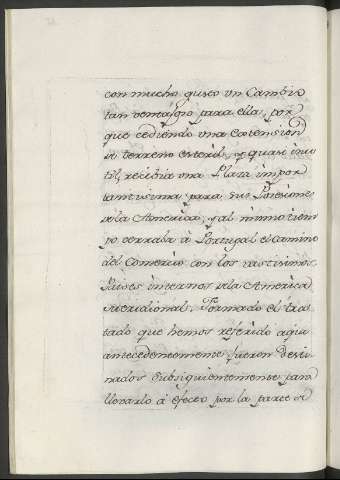 con mucho gusto un Cambio
tan ventajoso para ella, por
que cediendo una Extension
de terreno esteril, y quasi inu
til, recibia una Plaza impor
tantissima para sus Posesiones
de la America, y al mismo tiem
po cerraba à Portugal el camino
del Comercio con los vastisimos
Paises internos de la America
Meridional. Formado el tra
tado que hemos referido aqui
antecedentemente, fueron desti
nados subsiguientemente para
llevarlo à efecto por la parte de